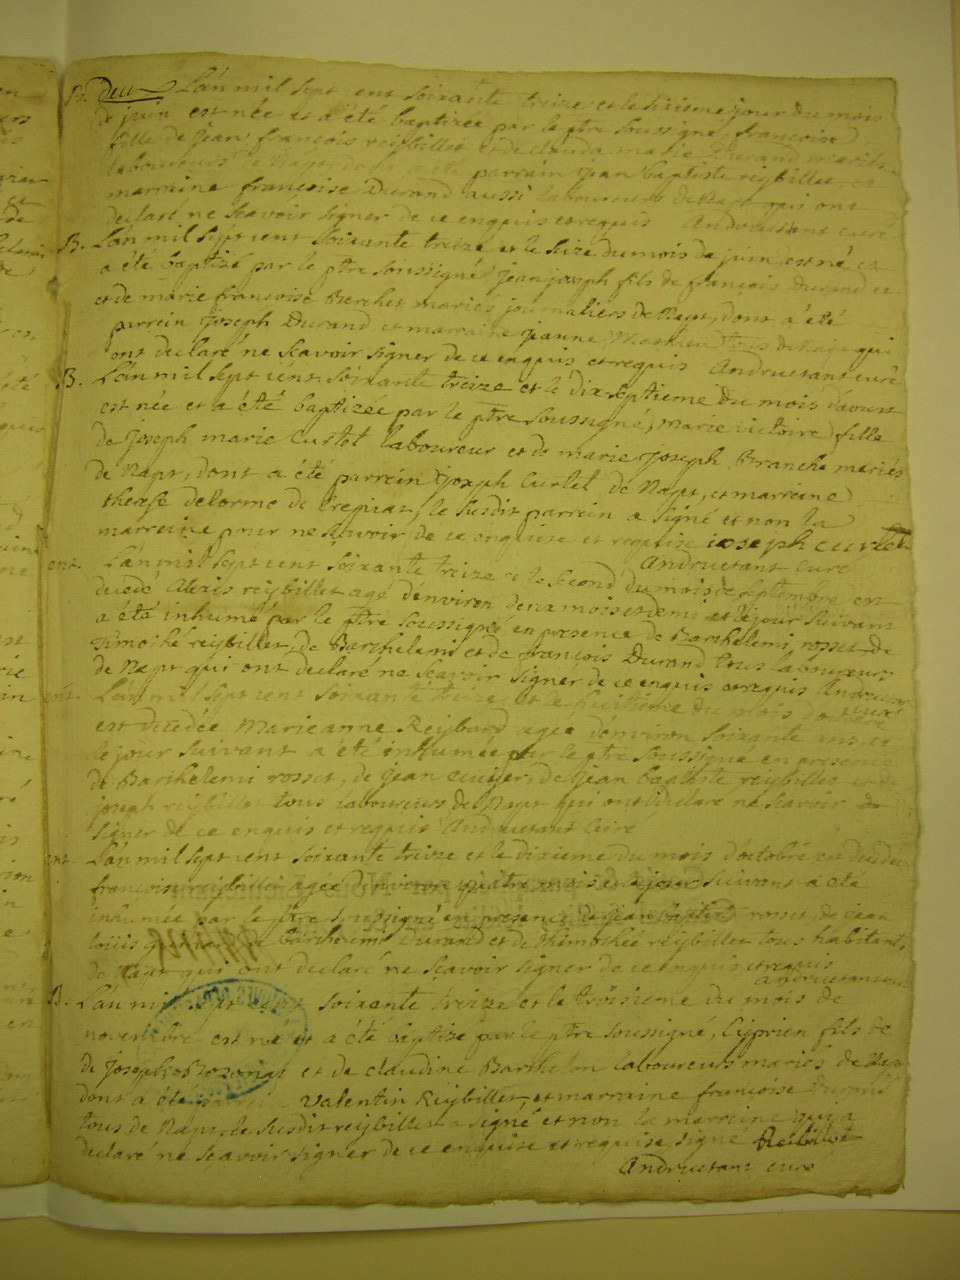 B. Deu L'an mil sept cent soixante treize et le sixieme jour du mois
de juin est née et a été baptizée par le ptre soussigné, francoise
fille de Jean françois reijbillet et de clauda marie Durand mariés
laboureurs de Napt, dont a été parrain jean baptiste reijbillet et
marraine françoise Durand aussi laboureurs de Napt qui ont
declaré ne scavoir signer de ce enquis et requis Andruetant curé
B. L'an mil sept cent soixante treize et le seize du mois de juin, est né et
a été baptisé par le ptre soussigné jean joseph fils de françois Durand et
et de marie françoise Berchet mariés journaliers de Napt, dont a été
parrein joseph Durand et marraine jeanne tous de Napt qui
ont declaré ne scavoir signer de ce enquis et requis Andruetant curé
B. L'an mil sept cent soixante treize et le dix septieme du mois d'aoust
est née et a été baptizée par le ptre soussigné, marie victoire fille
de joseph marie Curtet laboureur et de marie joseph Branche mariés
de Napt, dont a été parrein joseph Curtet de Napt, et marreine
therese delorme de , le susdit parrein a signé et non la
marreine pour ne scavoir de ce enquise et requise ioseph curtet
Andruetant curé
ent. L'an mil sept cent soixante treize et le second du mois de septembre est
decedé Alexis reijbillet agé d'environ deux mois et demi et le jour suivant
a été inhumé par le ptre soussigné en presence de Barthelemi rosset, de
Timothé reijbillet, de Barthelemi et de françois Durand tous laboureurs
de Napt qui ont declaré ne scavoir signer de ce enquis et requis Andruetant curé
ent. L'an mil sept cent soixante treize, et le huitieme du mois
est decedée Marieanne Reijbard agée d'environ soixante ans, et
le jour suivant a été inhumée par le ptre soussigné en presence
de Barthelemi rosset, de jean , de jean baptiste reijbillet et de
joseph reijbillet tous laboureurs de Napt qui ont declaré ne scavoir de
signer de ce enquis et requis Andruetant curé
ent. L'an mil sept cent soixante treize et le dixieme du mois d'octobre est decedée
françoise reijbillet agée d'environ quatre mois et le jour suivant a été
inhumée par le ptre soussigné en presence de jean baptiste rosset, de jean
loüis de Barthelemi Durand et de Thimothée reijbillet tous habitants
de Napt qui ont declaré ne scavoir signer de ce enquis et requis
Andruetant curé
B. L'an mil sept cent soixante treize et le troisieme du mois de
novembre est né et a été baptisé par le ptre soussigné, Ciprien fils de
de joseph et de claudine Barthelon laboureurs mariés de Napt
dont a été parrein valentin Reijbillet, et marraine françoise Durand
tous de Napt, le susdit reijbillet a signé et non la marraine qui a
declaré ne scavoir signer de ce enquise et requise signé Reibillet
Andruetant curé